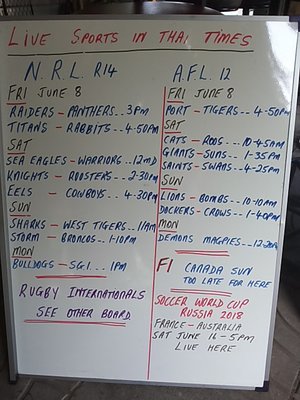 LIVE SPORTS IN THAI TIMES
N.R.L. R14
FRI JUNE 8
RAIDERS - PANTHERS.. 3PM
TITANS - RABBITS.. 4-50PM
SAT
SEA EAGLES - WARRIORS.. 12MD
KNIGHTS - ROOSTERS.. 2-30PM
EELS - COWBOYS.. 4-30PM
SUN
SHARKS - WEST TIGERS.. 11AM
STORM - BRONCOS.. 1-10PM
MON
BULLDOGS - SGI... 1PM
RUGBY INTERNATIONALS
SEE OTHER BOARD
A.F.L. 12
FRI JUNE 8
PORT - TIGERS.. 4-50PM
SAT
CATS - ROOS... 10-45AM
GIANTS - SUNS.. 1-35PM
SAINTS - SWANS.. 4-25PM
SUN
LIONS - BOMBS.. 10-10AM
DOCKERS - CROWS.. 1-40PM
MON
DEMONS MAGPIES.. 12-20PM
F1 CANADA SUN
TOO LATE FOR HERE
SOCCER WORLD CUP
RUSSIA 2018
FRANCE - AUSTRALIA
SAT JUNE 16 - 5PM
LIVE HERE